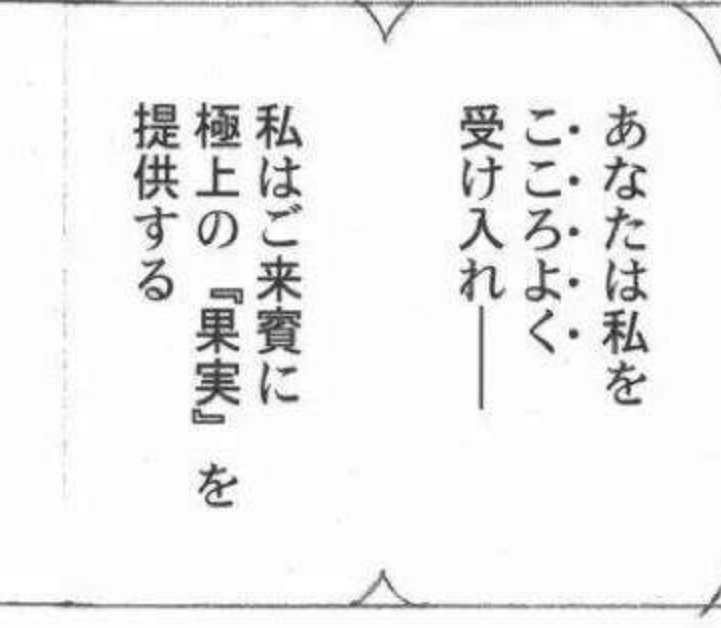 あなたは私を
こころよく
受け入れ――
私はご来賓に
極上の『果実』を
提供する